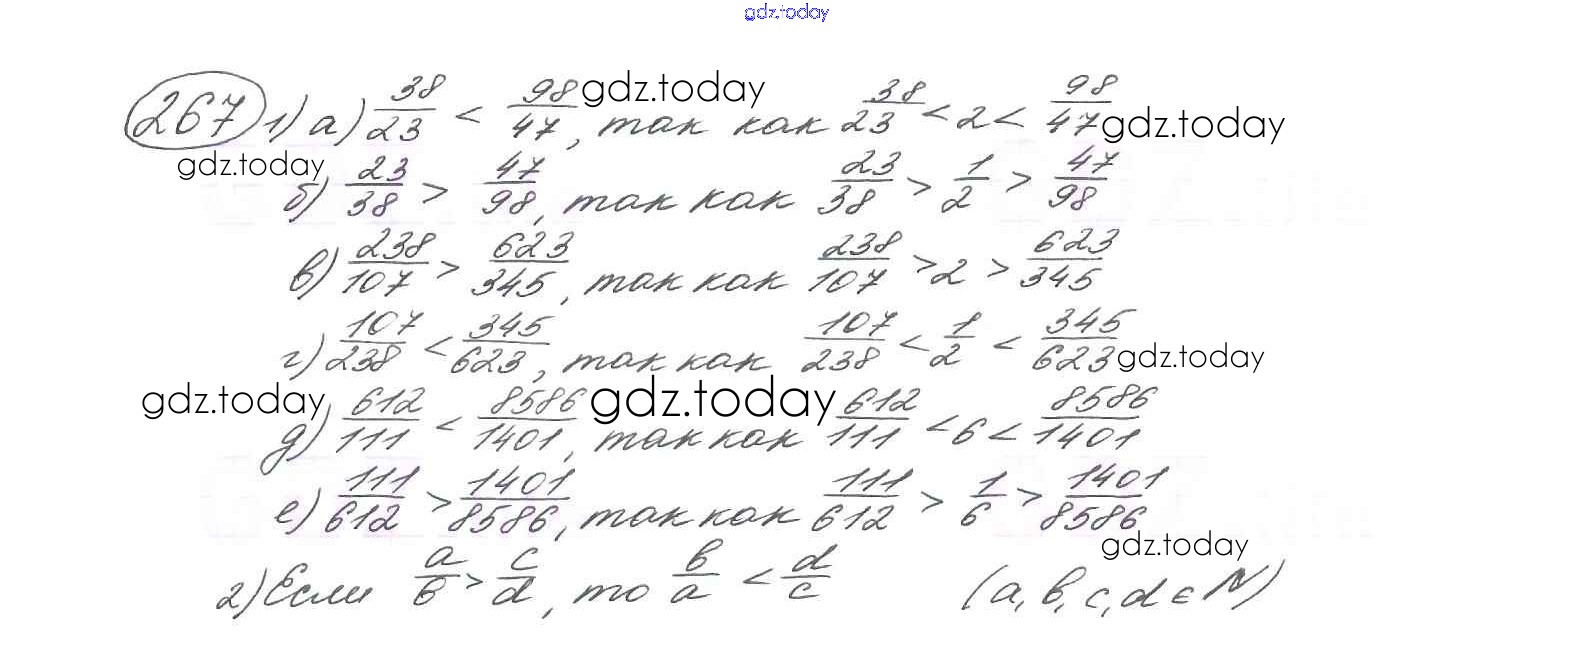 gdz.today
267 1) а) 38/23 < 98/47, так как 38/23 < 2 < 98/47
gdz.today gdz.today gdz.today
б) 23/38 > 47/98, так как 23/38 > 1/2 > 47/98
в) 238/107 > 623/345, так как 238/107 > 2 > 623/345
г) 107/238 < 345/623, так как 107/238 < 1/2 < 345/623
gdz.today
gdz.today gdz.today
д) 612/111 < 8586/1401, так как 612/111 < 6 < 8586/1401
е) 111/612 > 1401/8586, так как 111/612 > 1/6 > 1401/8586
gdz.today
2) Если a/b > c/d, то b/a < d/c (a, b, c, d ∈ N)